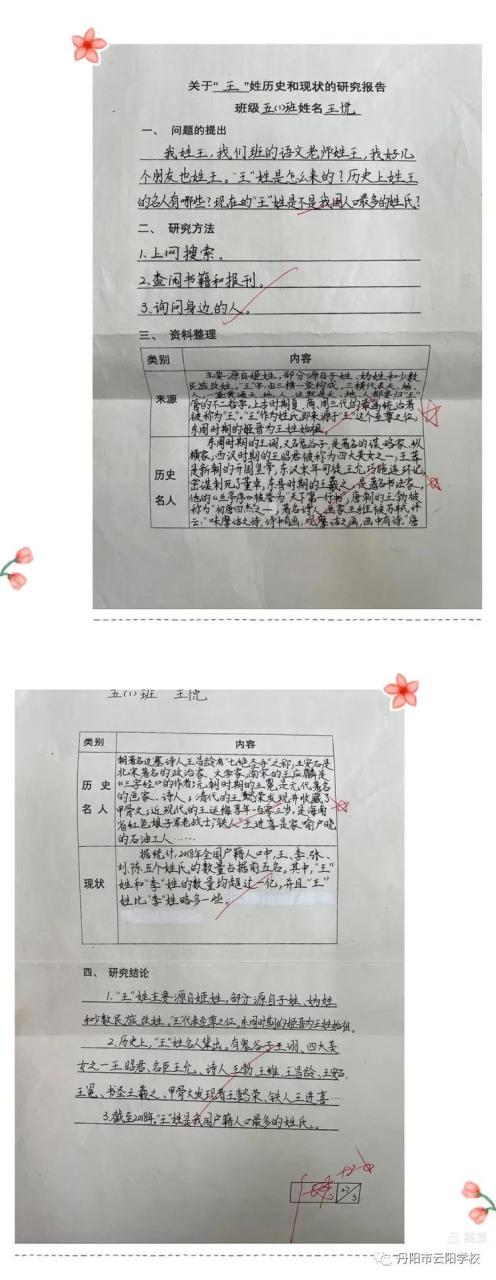 关于"王"姓历史和现状的研究报告
班级五(1)班姓名王悦
一、 问题的提出
我姓王,我们班的语文老师姓王,我好几
个朋友也姓王。"王"姓是怎么来的?历史上姓王
的名人有哪些?现在的"王"姓是不是我国人口最多的姓氏?
二、 研究方法
1.上网搜索。
2.查阅书籍和报刊。
3.询问身边的人。
三、 资料整理
类别 内容
来源
主要源自姬姓,部分源自子姓、妫姓和少数
民族改姓。"王"字由三横一竖构成,三横代表天、地、
人,一竖贯通天、地、人
管的不二哲学,上古时期夏、商、周三代的最高统治者
被称为"王"。"王"作为姓氏即来源于"王"这个至尊之位,
东周时期的姬晋为王姓始祖。
历史
名人
东周时期的王诩,又名鬼谷子,是著名的谋略家、纵
横家;西汉时期的王昭君被称为四大美女之一;王莽
是新朝的开国皇帝,东汉末年司徒王允巧施连环计,
密谋刺死了董卓,东晋时期的王羲之,是著名书法家,
他的《兰亭序》被誉为"天下第一行书",唐朝的王勃被
称为"初唐四杰之一",著名诗人、画家王维被苏轼评
云:"味摩诘之诗,诗中有画,观摩诘之画,画中有诗。"唐
五(1)班 王悦
类别 内容
历 史
名 人
朝著名边塞诗人王昌龄有"七绝圣手"之称,王安石是
北宋著名的政治家、文学家,南宋的王应麟是
《三字经》的作者;元朝时期的王冕是元代著名
的画家、诗人;清代的王懿荣发现并收藏了
甲骨文;近现代的王运梅享年一百零三岁,是海南
省红色娘子军老战士;"铁人"王进喜是家喻户晓
的石油工人……
现状
据统计,2018年全国户籍人口中,王、李、张、
刘、陈五个姓氏的数量占据前五名。其中,"王"
姓和"李"姓的数量均超过一亿,并且"王"
姓比"李"姓略多一些。
四、 研究结论
1."王"姓主要源自姬姓,部分源自子姓、妫姓
和少数民族改姓,"王"代表至尊之位。东周时期的姬晋为王姓始祖。
2.历史上,"王"姓名人辈出。有鬼谷子王诩、四大美
女之一王昭君、名臣王允、诗人王勃、王维、王昌龄、王安石、
王冕、书圣王羲之、甲骨文发现者王懿荣、铁人王进喜……
3.截至2018年,"王"姓是我国户籍人口最多的姓氏。
27/3
丹阳市云阳学校